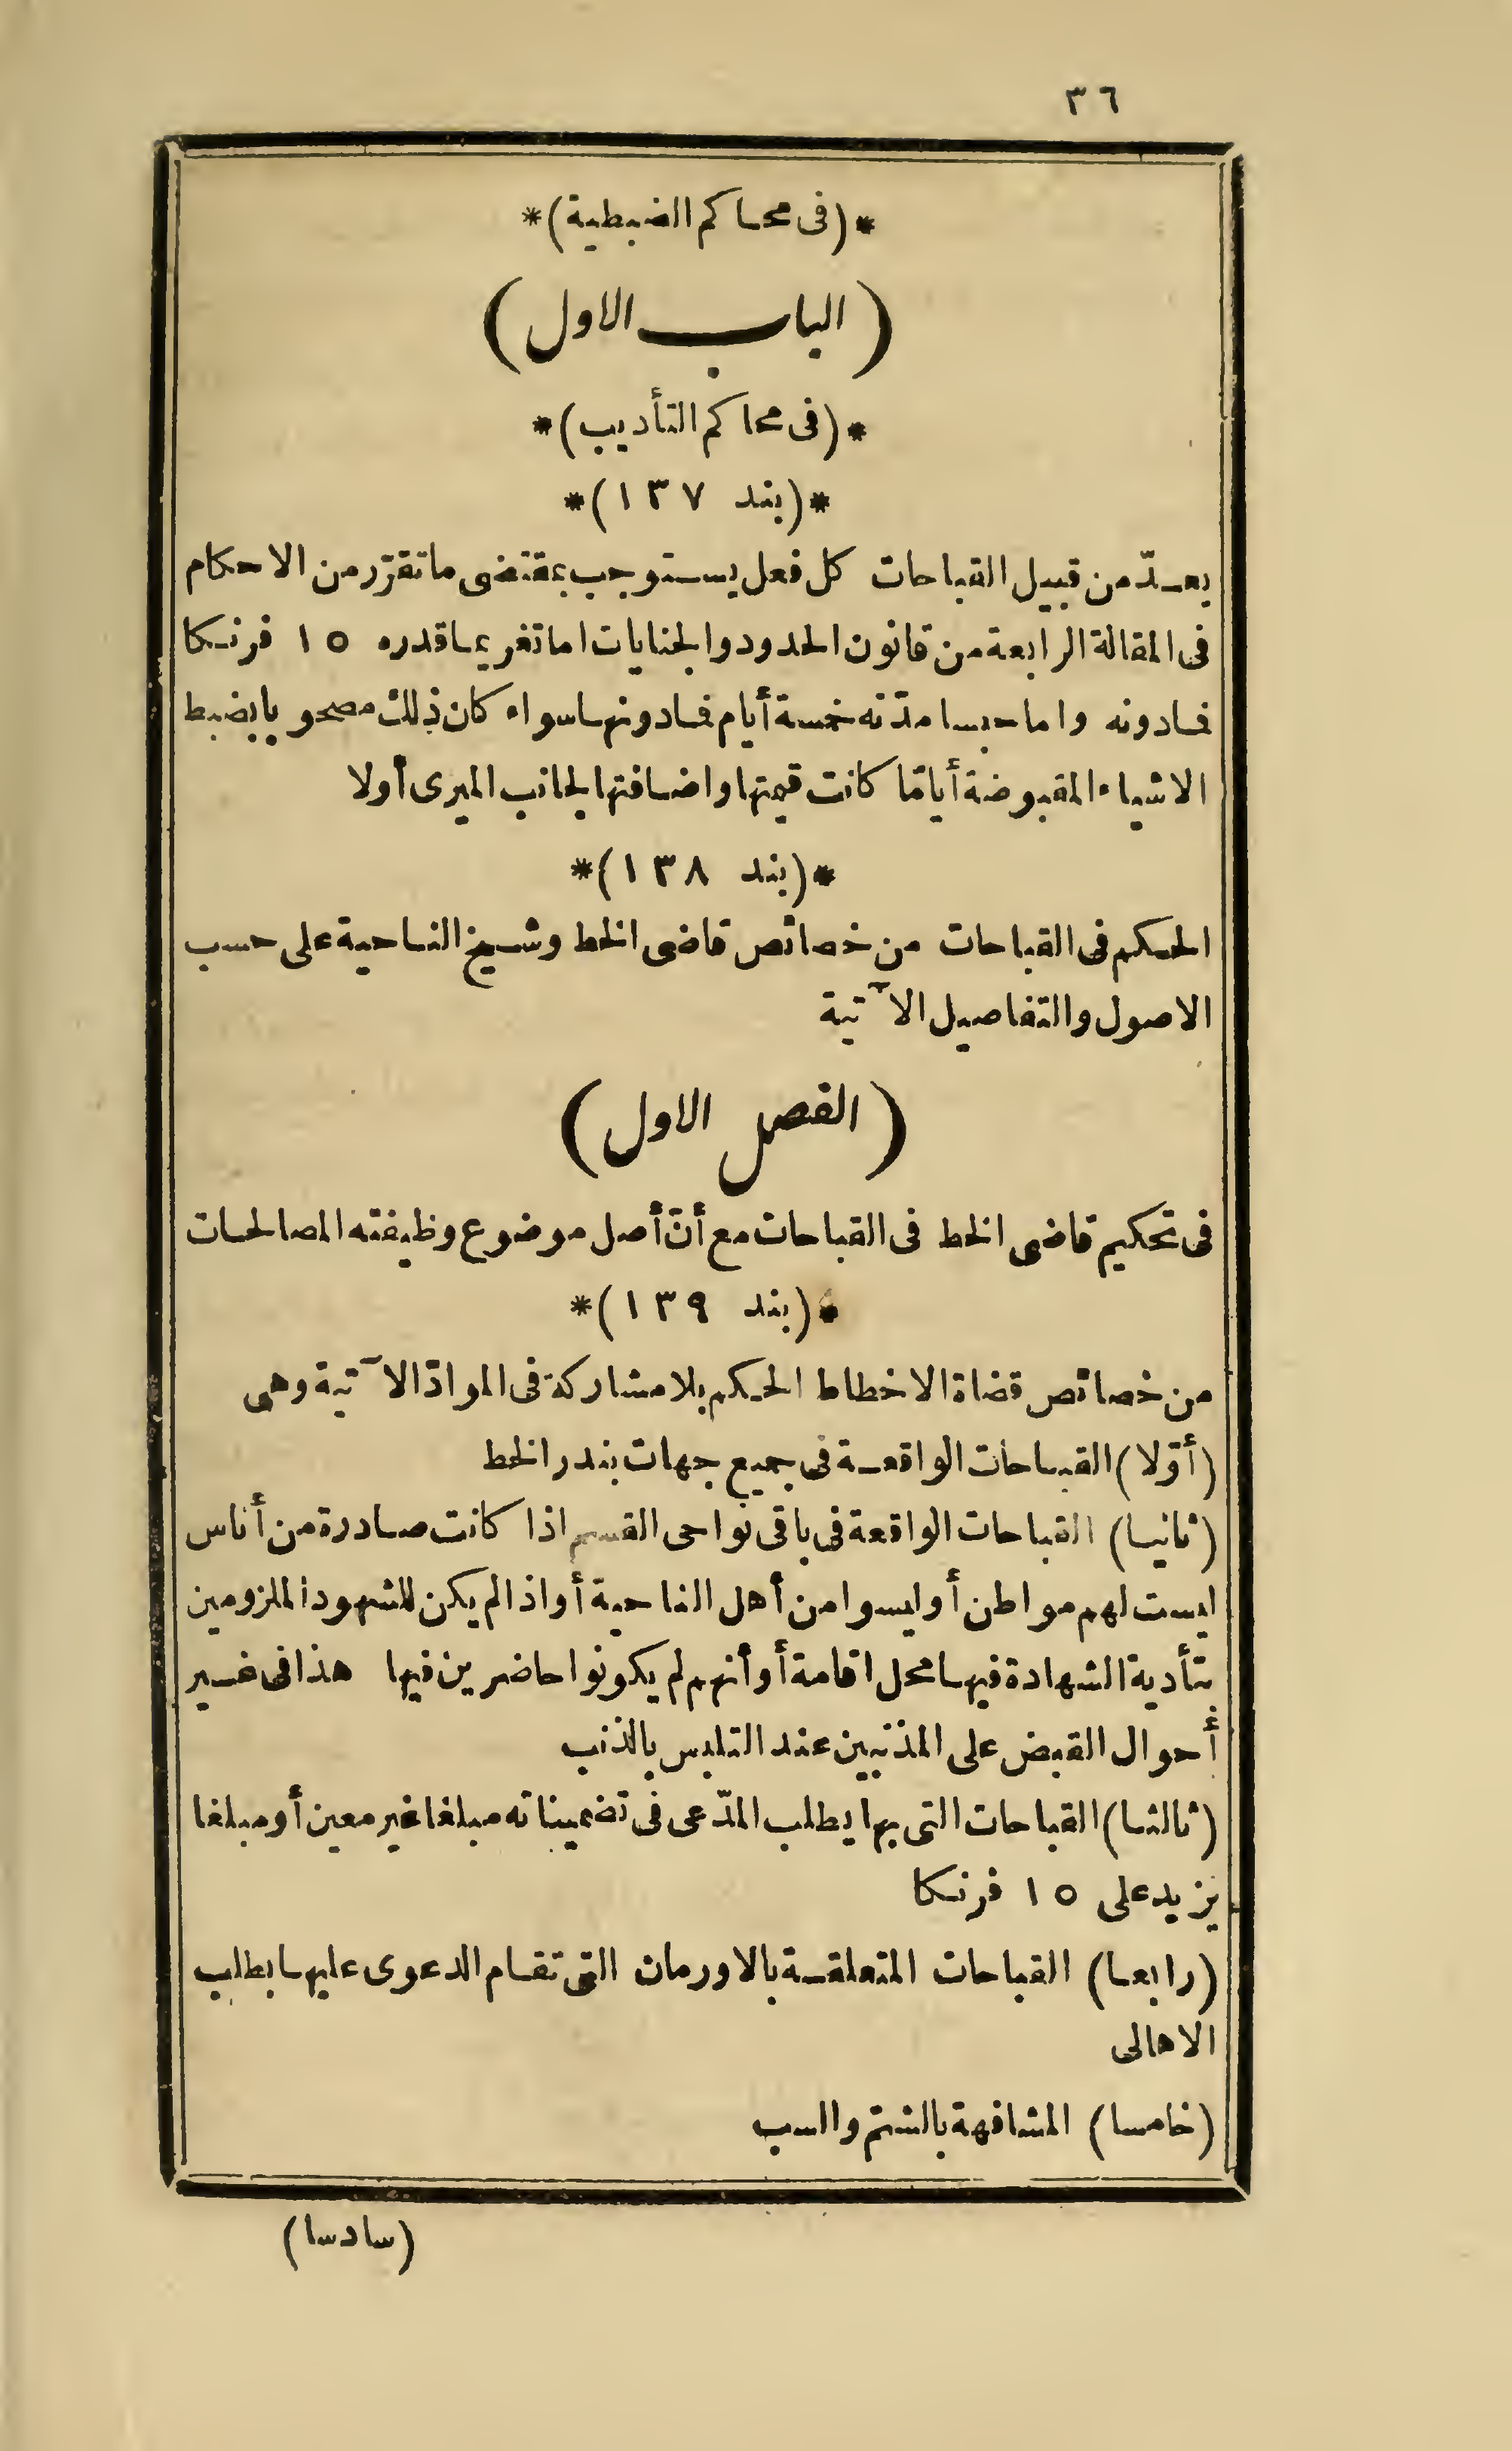 ٣٦
*(فى محاكم الضبطية)*
(الباب الاول)
*(فى محاكم التأديب)*
*(بند ١٣٧)*
يعدّ من قبيل القباحات كل فعل يستوجب بمقتضى ما تقرّر من الاحكام
فى المقالة الرابعة من قانون الحدود والجنايات اما تغريما قدره ١٥ فرنكا
فادونه واما حبسا مدّته خمسة أيام فادونها سواء كان ذلك مصحوبا بضبط
الاشياء المقبوضة أيا مّا كانت قيمتها واضافتها لجانب الميرى أولا
*(بند ١٣٨)*
الحكم فى القباحات من خصائص قاضى الخط وشيخ الناحية على حسب
الاصول والتفاصيل الآتية
(الفصل الاول)
فى تحكيم قاضى الخط فى القباحات مع أنّ أصل موضوع وظيفته المصالحات
*(بند ١٣٩)*
من خصائص قضاة الاخطاط الحكم بلا مشاركة فى الموادّ الآتية وهى
(أوّلا) القباحات الواقعة فى جميع جهات بندر الخط
(ثانيا) القباحات الواقعة فى باقى نواحى القسم اذا كانت صادرة من أناس
ليست لهم مواطن أوليسوا من أهل الناحية أو اذا لم يكن للشهود الملزومين
بتأدية الشهادة فيها محل اقامة أو أنهم لم يكونوا حاضرين فيها هذا فى غير
أحوال القبض على المذنبين عند التلبس بالذنب
(ثالثا) القباحات التى بها يطلب المدّعى فى تضميناته مبلغا غير معين أو مبلغا
يزيد على ١٥ فرنكا
(رابعا) القباحات المتعلقة بالاورمان التى تقام الدعوى عليها بطلب
الاهالى
(خامسا) المشافهة بالشتم والسب
(سادسا)